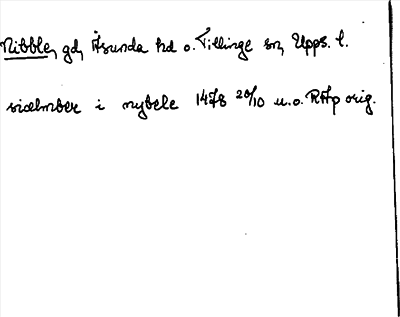 Nibble, gd, Åsunda hd o. Tillinge sn, Upps. l.
sicelmber i nybele 1478 20/10 u.o. RAp orig.